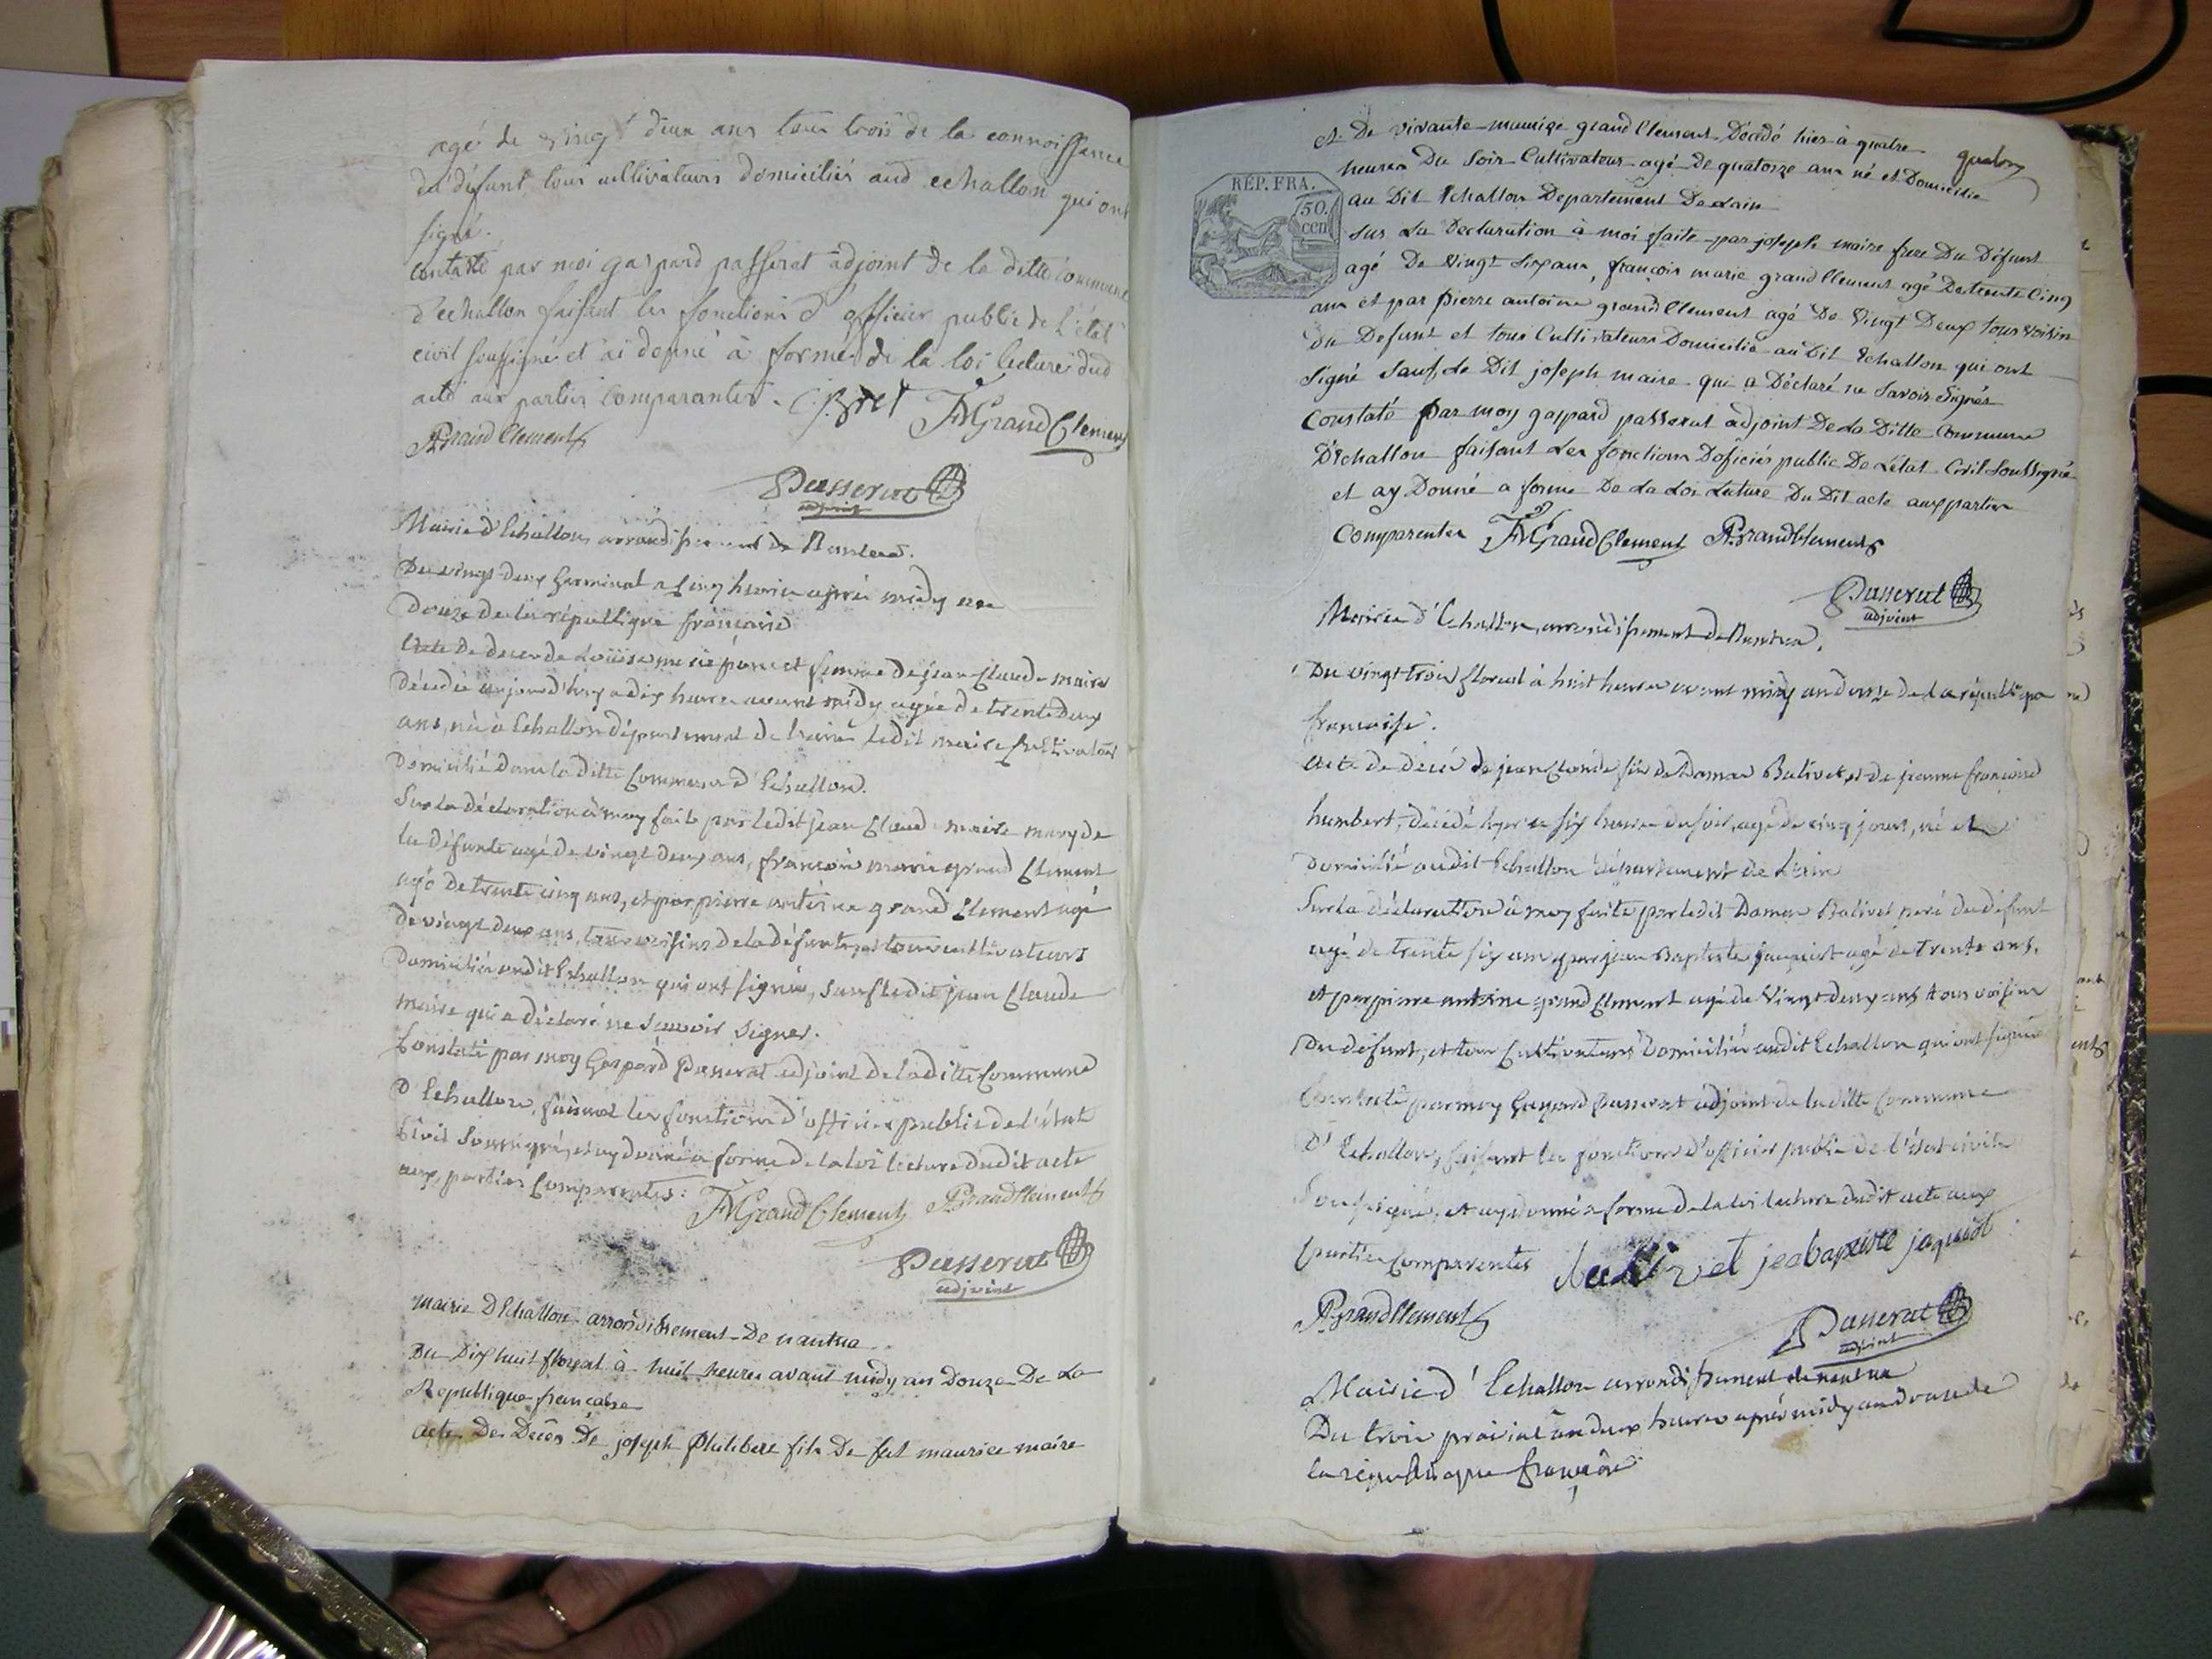 agé de vingt deux ans tous trois de la connoissance
du défunt, tous cultivateurs domiciliés aud echallon qui ont
signé.
Constaté par moi gaspard passerat adjoint de la ditte commune
d'echallon faisant les fonctions d'officier public de l'état
civil soussigné et ai donné à forme de la loi lecture dud
acte aux parties comparantes. Bret FMGrand Clement
PAgrand Clement
Passerat
adjoint
Mairie d'Echallon arrondissement de Nantua.
Du vingt deux germinal a cinq heures après midy an
douze de la république française
Acte de deces de Louise femme de jean Claude maire
décédée aujourd'huy a dix heures avant midy agée de trente deux
ans, née à Echallon département de l'ain ledit maire Cultivateur
Domicilié dans la ditte Commune d'Echallon.
Sur la déclaration à moy faite par ledit jean Claude maire mary de
la défunte agé de vingt deux ans, françois marie grand Clement
agé de trente cinq ans, et par pierre antoine grand Clement agé
de vingt deux ans, tous voisins de la défunte, et tous cultivateurs
Domiciliés audit Echallon qui ont signé, sauf ledit jean Claude
maire qui a déclaré ne sçavoir signer.
Constaté par moy Gaspard Passerat adjoint de la ditte Commune
D'Echallon, faisant les fonctions d'officier public de l'état
Civil soussigné, et ay donné a forme de la loi lecture dudit acte
aux parties Comparantes: FMGrand Clement PAgrandClement
Passerat
adjoint
mairie D'Echallon arrondissement De nantua
Du Dix huit floreal à huit heures avant midy an Douze De La
Republique française
acte De Décès De joseph Philibert fils De feu maurice maire
et De vivante maurize grand Clement Décédé hier à quatre
quatorze
heures Du soir Cultivateur agé De quatorze ans né et Domicilié
REP. FRA.
50.
cen
au Dit Echallon Departement De Lain
sur La Declaration à moi faite par joseph maire frere Du Défunt
agé De Vingt six ans, françois marie grand Clement agé De trente Cinq
ans et par pierre antoine grand Clement agé De Vingt Deux tous voisin
du Defunt et tous Cultivateurs Domicilié au Dit Echallon qui ont
signé sauf le Dit joseph maire qui a Déclaré ne Savoir Signer
Constaté par moy gaspard passerat adjoint De La Ditte Commune
D'Echallon faisant Les fonctions Doficier public De Létat Civil Soussigné
et ay Donné a forme De La Loi Lecture Du Dit acte aux parties
Comparentes FMGrand Clement PAgrandClement
Passerat
adjoint
Mairie d'Echallon, arrondissement de Nantua.
Du vingt trois floreal à huit heures avant midy an douze de la république
française.
Acte de décès de jean Claude fils de Damas Balivet et de jeanne françoise
humbert, décédé hyer a six heures du soir, agé de cinq jours, né et
domicilié audit Echallon département de L'ain
Sur la déclaration à moy faite par ledit Damas Balivet père du défunt
agé de trente six ans, par jean Baptiste jaquiot agé de trente ans.
et par pierre antoine grand Clement agé de Vingt deux ans tous voisins
Du défunt, et tous Cultivateurs Domiciliés audit Echallon qui ont signé
Constaté par moy Gaspard Passerat adjoint de la ditte Commune
D'Echallon, faisant les fonctions d'officier public de l'état civile
soussigné, et ay donné a forme de la loi lecture dudit acte aux
parties Comparentes balivet jeabapiste jaquiot
PAgrandClement
Passerat
adjoint
Mairie d'Echallon arrondissement de nantua
Du trois prairial a deux heures après midy an douze de
la république française